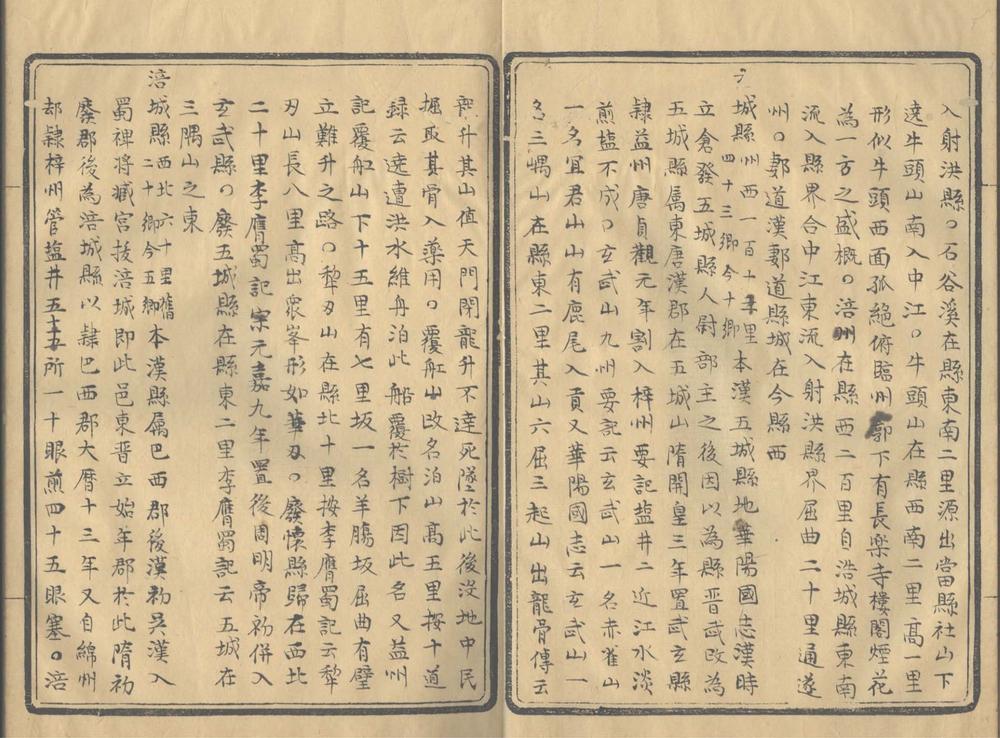 入射洪縣○石谷溪在縣東南二里源出當縣社山下
遶牛頭山南入中江○牛頭山在縣西南二里高一里
形似牛頭西面孤絕俯臨州郭下有長楽寺樓閣煙花
為一方之盛概○涪州在縣西二百里自浩城縣東南
流入縣界合中江東流入射洪縣界屈曲二十里通遂
州○郪道漢郪道縣城在今縣西
城縣州西一百十里四十三鄉今十鄉本漢五城縣地華陽國志漢時
立倉發五城縣人尉部主之後因以為縣晋武改為
五城縣属東唐漢郡在五城山隋開皇三年置武玄縣
隸益州唐貞觀元年割入梓州要記塩井二近江水淡
煎塩不成○玄武山九州要記云玄武山一名赤雀山
一名宜君山山有鹿尾入貢又華陽國志云玄武山一
名三嵎山在縣東二里其山六屈三起山出龍骨傳云
升其山值天門閉龍升不達死墜於此後没地中民
掘取其骨入藥用○覆舡山改名泊山高五里按十道
録云堯遭洪水維舟泊此船覆於樹下因此名又益州
記覆舡山下十五里有七里坂一名羊膓坂屈曲有壁
立難升之路○犂刃山在縣北十里按李膺蜀記云犂
刃山長八里高出衆峯形如華刃○廢懷縣歸在西北
二十里李膺蜀記宋元嘉九年置後周明帝初併入
玄武縣○廢五城縣在縣東二里李膺蜀記云五城在
三隅山之東
涪城縣西北六十里舊二十鄉今五鄉本漢縣属巴西郡後漢初吳漢入
蜀裨將臧宫拔涪城即此邑東晋立始年郡於此隋初
廢郡後為涪城縣以隸巴西郡大暦十三年又自綿州
却隸梓州管塩井五十五所一十眼煎四十五眼塞○涪